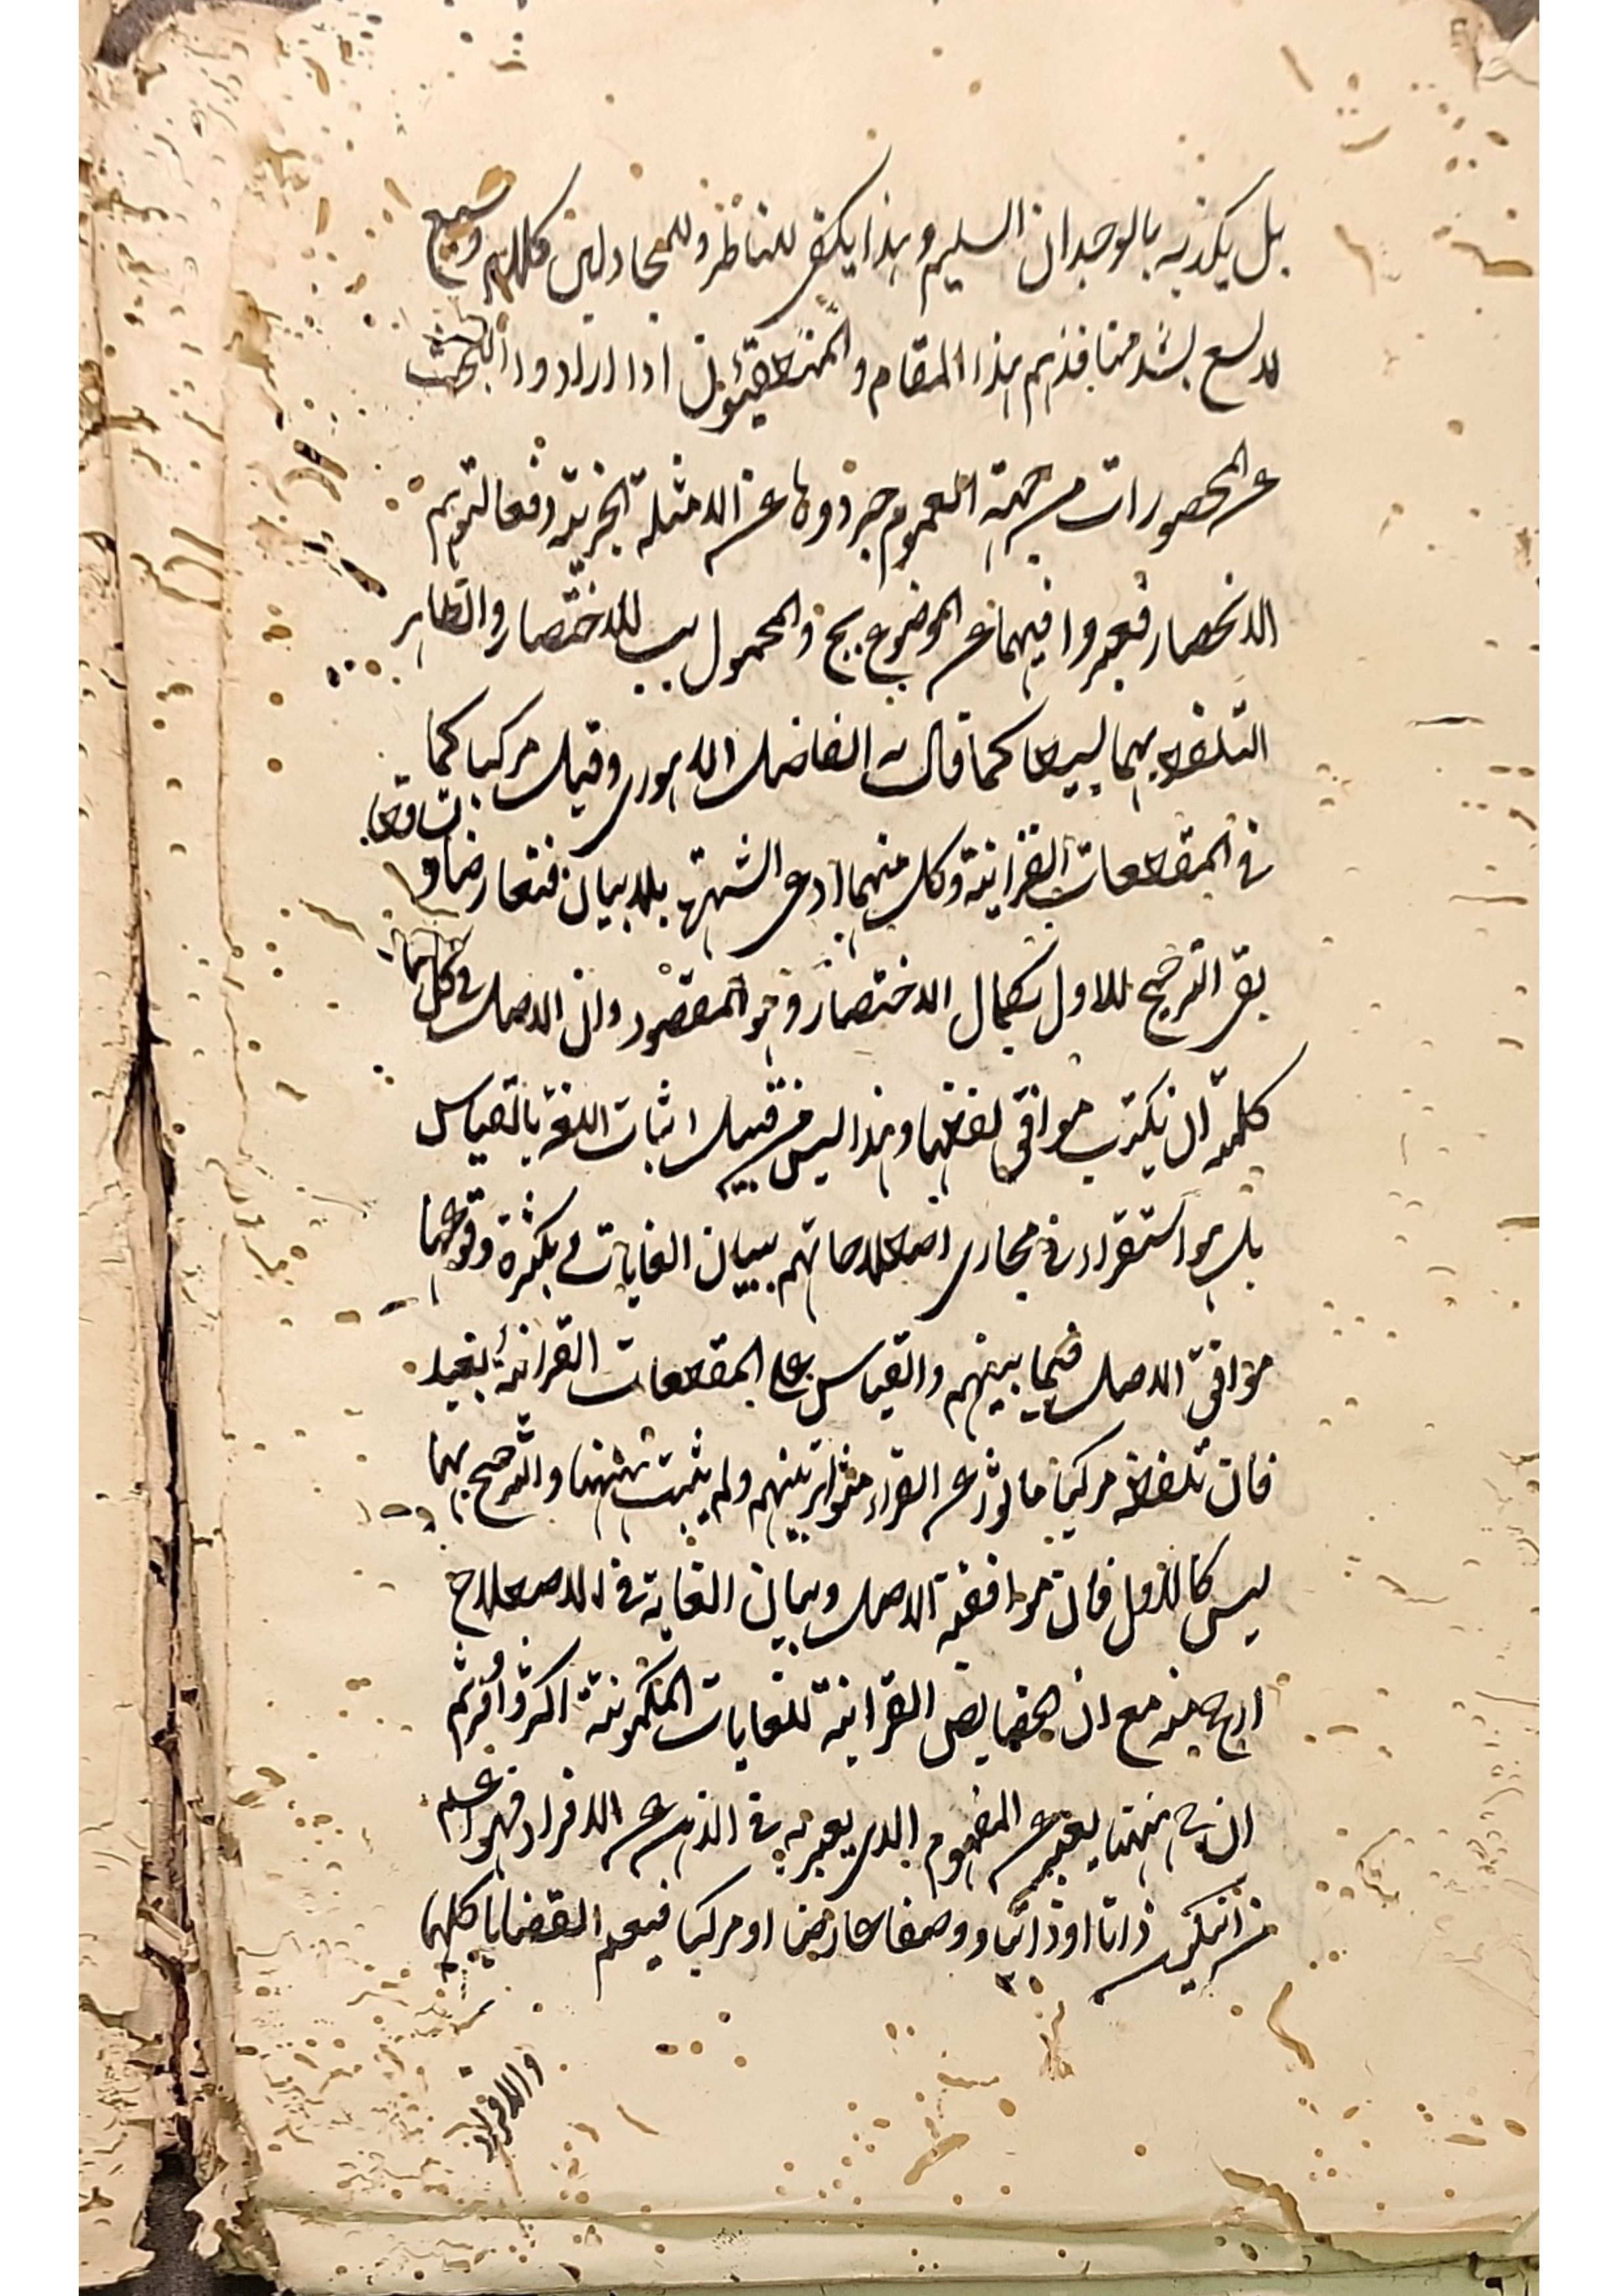 بل يكذبه بالوجدان السليم وهذا يكفي للناظر وللمجادلين كلام وسيع
لا يسع بسد منافذهم هذا المقام والمنطقيون اذا ارادوا البحث
عن المحصورات من جهة العموم جردوها عن الامثلة الجزئية دفعا لتوهم
الانحصار فعبروا فيهما عن الموضوع بج والمحمول بب للاختصار والظاهر
التلفظ بهما بسيطا كما قال به الفاضل اللاهوري وقيل مركبا كما
في المقطعات القرانية وكل منهما ادعى الشهرة بلا بيان فتعارضا و
تساقطا
بقي الترجيح للاول بكمال الاختصار وهو المقصود وان الاصل في كل
كلمة ان يكتب موافق لفظها وهذا ليس من قبيل اثبات اللغة بالقياس
بل هو استقراء في مجاري اصطلاحاتهم ببيان الغايات بكثرة وقوعها
موافق الاصل فيما بينهم والقياس على المقطعات القرانية بعيد
فان تلفظه مركبا ماثور عن القراء متواتر منهم ولم يثبت ههنا والترجيح بهما
ليس كالاول فان موافقة الاصل وبيان الغاية في الاصطلاح
ارجح منه مع ان الخصايص القرانية للغايات المكنونة اكثر وافر ثم
ان ج ههنا يعبر عن المفهوم الذي يعبر به في الذهن عن الافراد فهو اعم
من ان يكون ذاتا او ذاتيا ووصفا عارضا او مركبا فيعم القضايا كلها
والافراد